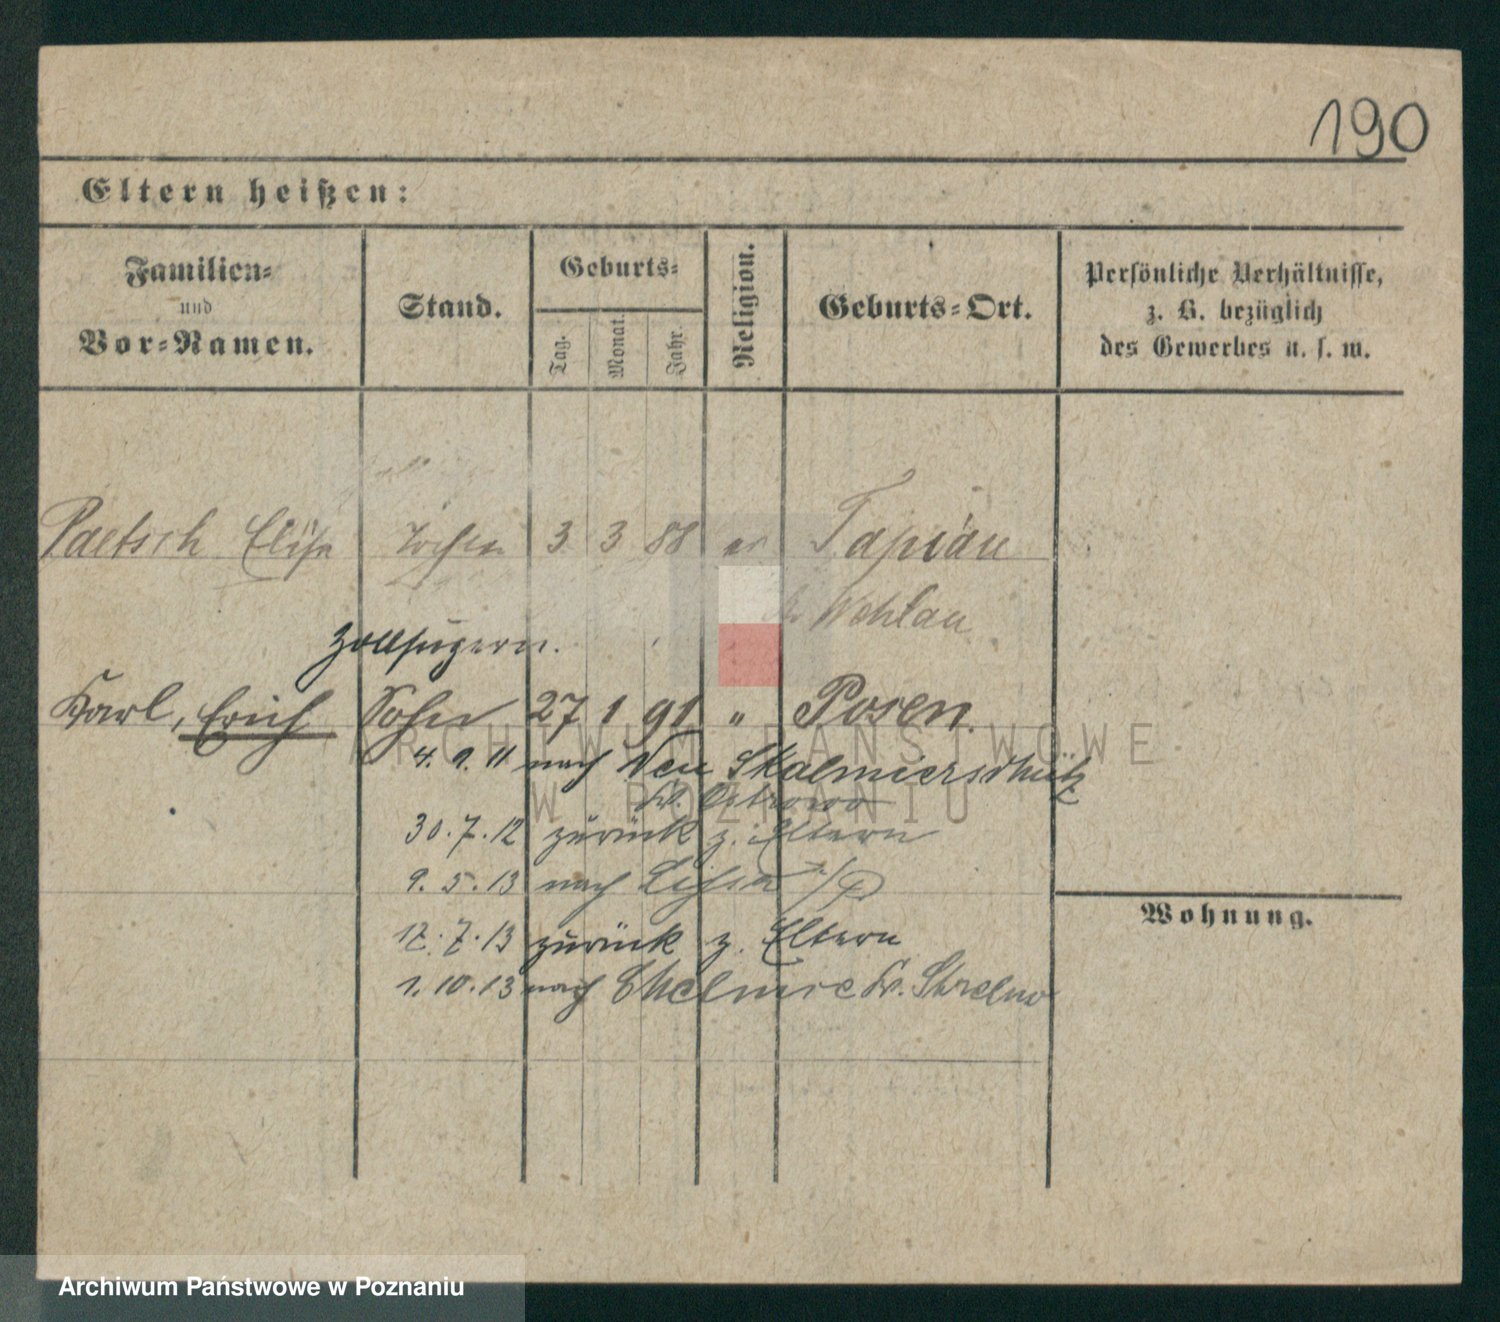 190
Eltern heißen:
Familien-
und
Vor-Namen.
Stand.
Geburts-
Tag.
Monat.
Jahr.
Religion.
Geburts-Ort.
Persönliche Verhältnisse,
z. B. bezüglich
des Gewerbes u. s. w.
Paetsch Elise Tochter 3 3 88 ev Tapiau
Kr. Wehlau
Karl, Erich Sohn 27 1 91 " Posen.
4. 9. 11 nach Neu Skalmierschütz
Kr. Ostrowo
30. 7. 12 zurück z. Eltern
9. 5. 13 nach Lissa i/P
Wohnung.
12. 7. 13 zurück z. Eltern
1. 10. 13 nach Chelmce Kr. Strelno
ARCHIWUM PAŃSTWOWE
W POZNANIU
Archiwum Państwowe w Poznaniu